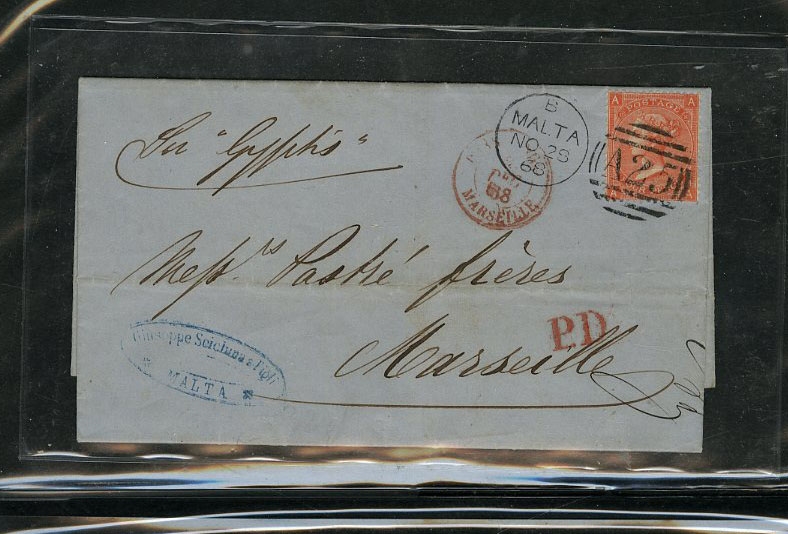 B
MALTA
NO 28
68
A A
POSTAGE
A25
A
Per "Gyptis"
68
MARSEILLE
Messrs Pastré frères
P.D.
Marseille
Giuseppe Scicluna e Figli
MALTA